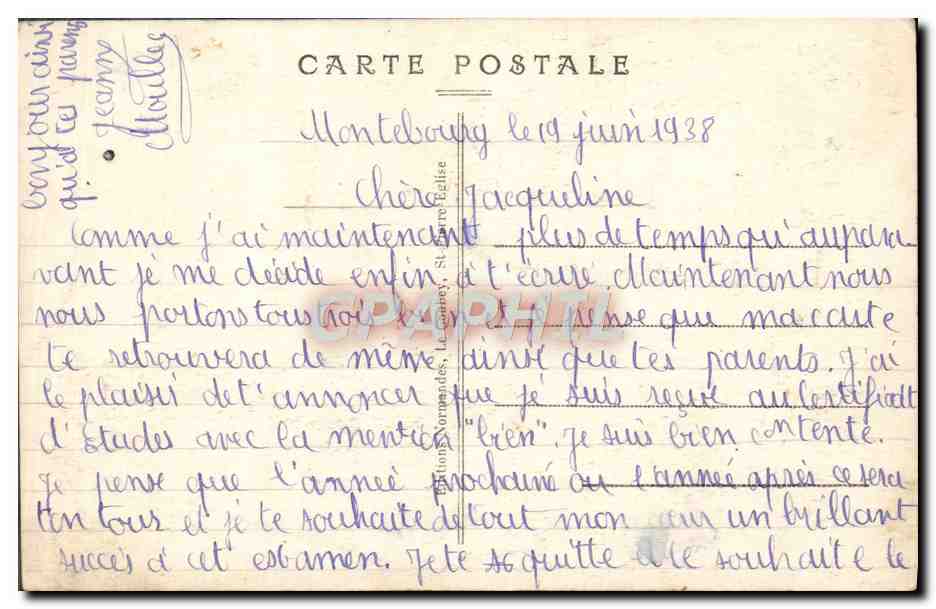 CARTE POSTALE
Montebourg le 19 juin 1938
Chère Jacqueline
Comme j'ai maintenant plus de temps qu'aupara-
vant je me décide enfin à t'écrire. Maintenant nous
nous portons tous trois bien et je pense que ma carte
te retrouvera de même ainsi que tes parents. J'ai
le plaisir de t'annoncer que je suis reçue au Certificat
d'études avec la mention "bien". Je suis bien contente.
Je pense que l'année prochaine ou l'année après ce sera
ton tour et je te souhaite de tout mon cœur un brillant
succès à cet esxamen. Je te quitte te souhaite le
bonjour ainsi
qu'à tes parents
Jeanne
Editions Normandes, Le Goubey, St-Pierre-Eglise
CPAPHIL